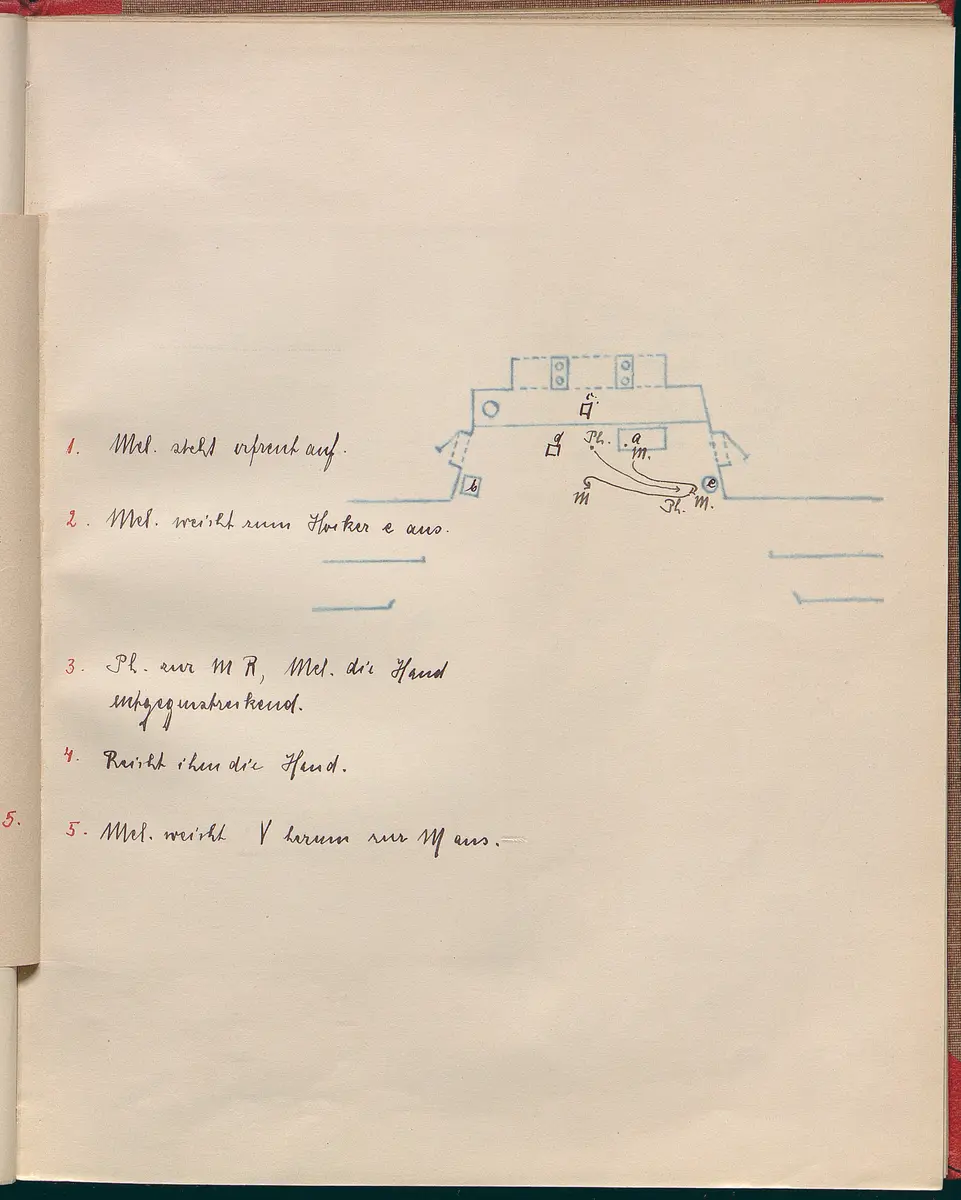 1. Mel. steht erfreut auf.
2. Mel. weicht zum Hocker e aus.
3. Ph. zur M R, Mel. die Hand
entgegenstreckend.
4. Reicht ihm die Hand.
5.
5. Mel. weicht V herum zur M aus.
c.
d
Ph.
a
M.
b
e
M
Ph.
M.